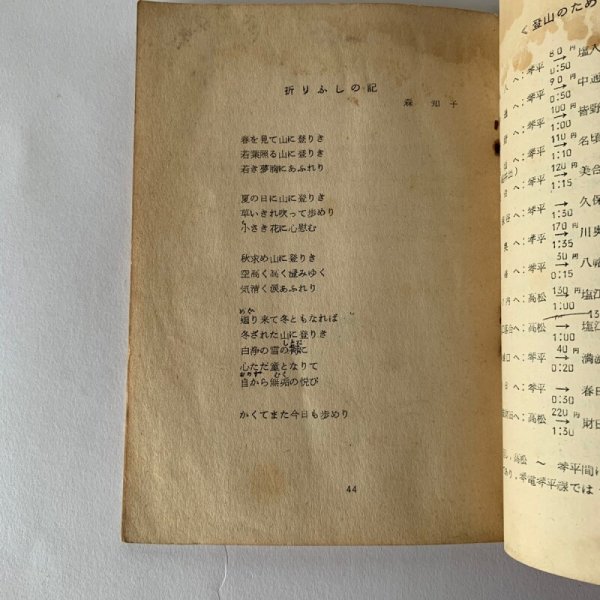 折りふしの記
森 知子
春を見て山に登りき
若葉照る山に登りき
若き夢胸にあふれり
夏の日に山に登りき
草いきれ吹って歩めり
小さき花に心慰む
秋求め山に登りき
空高く高く澄みゆく
気清く涙あふれり
めぐ
廻り来て冬ともなれば
冬ざれた山に登りき
しとね
白浄の雪の褥に
心ただ童となりて
おのず むく
自から無垢の悦び
かくてまた今日も歩めり
44
<登山のため
へ:琴平 60円 → 0:50 塩入
へ:琴平 90円 → 0:50 中通
へ:琴平 100円 → 1:00 皆野
へ:琴平 110円 → 1:10 名頃
へ:琴平 120円 → 1:15 美合
へ:琴平 → 1:30 久保
へ:琴平 170円 → 1:35 川奥
へ:琴平 50円 → 八峰
へ:高松 130円 → 1:00 塩江
へ:高松 → 塩江
13
へ:琴平 40円 → 0:20 満濃
へ:琴平 → 0:30 春日
へ:高松 220円 → 1:30 財田
し,高松 ～ 琴平間に
であり,琴電琴平課では